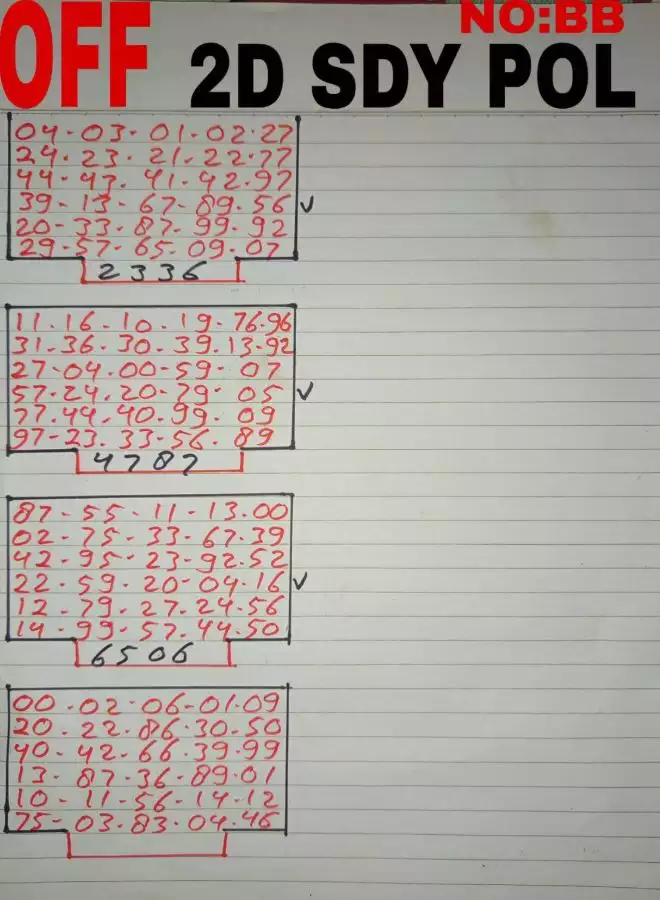 NO:BB
OFF 2D SDY POL
04-03-01-02-27
24-23-21-22-77
44-43-41-42-97
39-13-67-89-56
20-33-87-99-92
29-57-65-09-07
2336
11-16-10-19-76-96
31-36-30-39-13-92
27-04-00-59-07
57-24-20-79-05
77-44-40-99-09
97-23-33-56-89
4787
87-55-11-13-00
02-75-33-67-39
42-95-23-92-52
22-59-20-04-16
12-79-27-24-56
14-99-57-44-50
6506
00-02-06-01-09
20-22-86-30-50
40-42-66-39-99
13-87-36-89-01
10-11-56-14-12
75-03-83-04-46